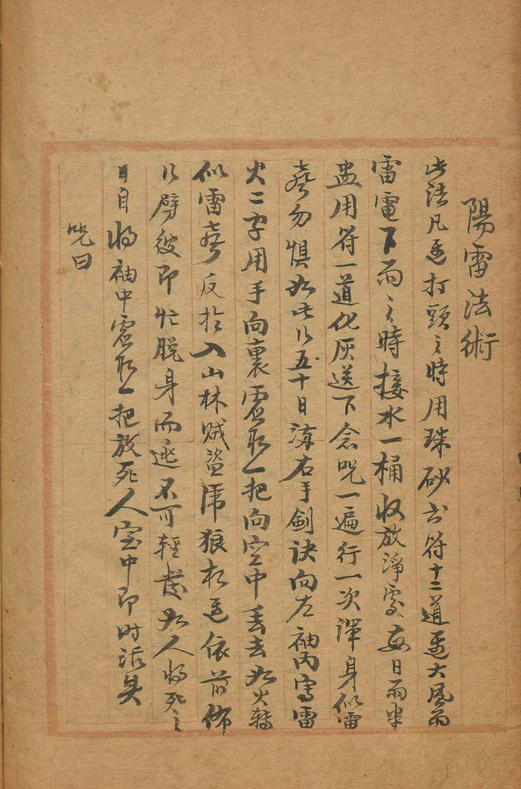 陽雷法術
此法凡遇打頭之時用珠砂書符十二道遇大風雨
雷電下雨之時接水一桶收放淨處每日兩半
盅用符一道化灰送下念咒一遍行一次渾身似雷
聲勿惧如此以五十日滿右手劍訣向左袖內寫雷
火二字用手向裏虛取一把向空中丟去如火轉
似雷聲反於入山林賊盜虎狼相遇依前作
以劈彼即忙脫身而逃不可輕發如人將死之
日自將袖中虛取一把放死人室中即时活矣
咒曰